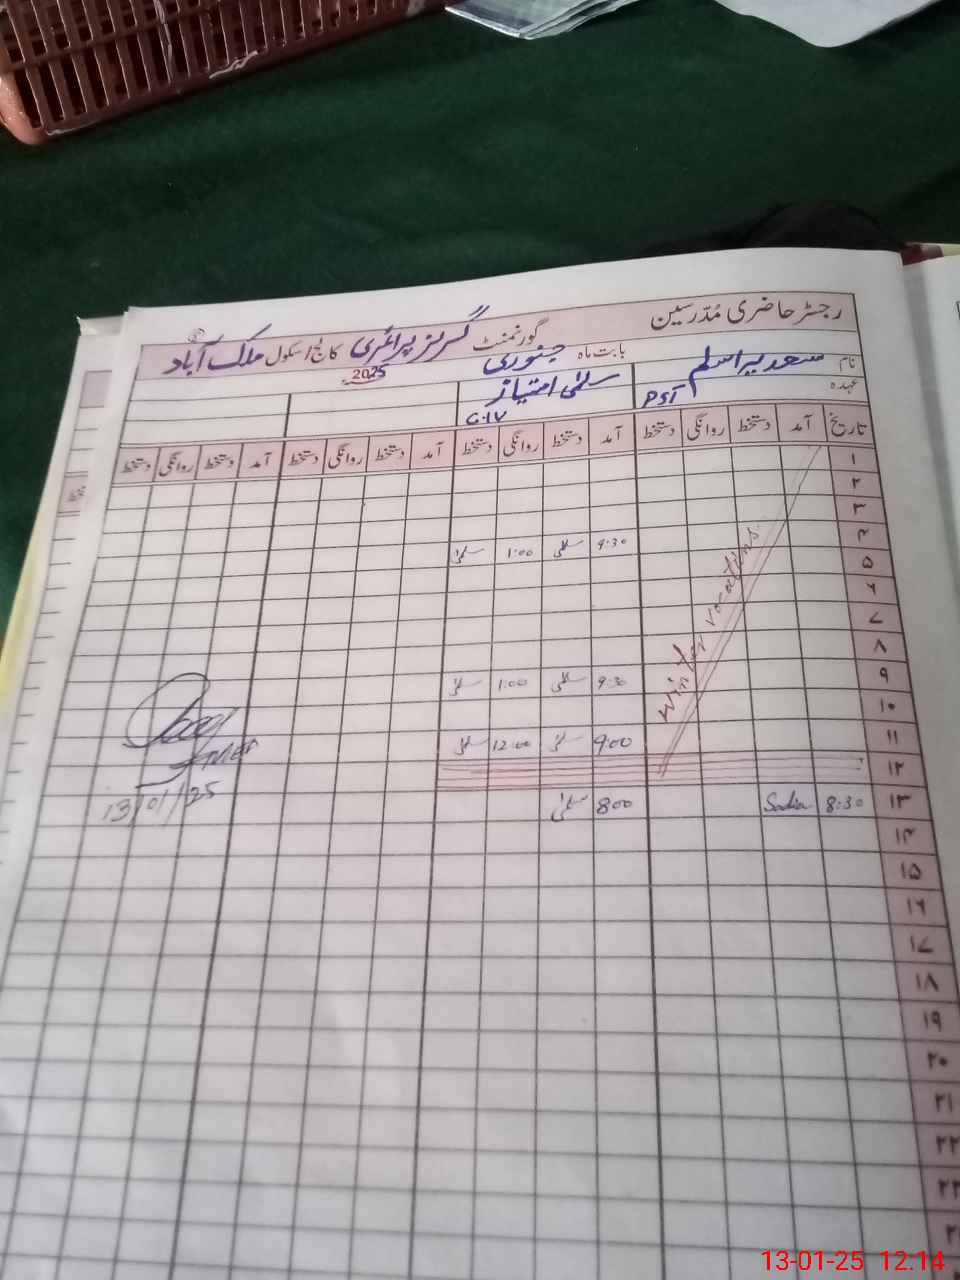 رجسٹر حاضری مُدرّسین
گورنمنٹ گرلز پرائمری کالج/سکول ملک آباد
بابت ماہ جنوری 2025
نام سعدیہ اسلم سلمٰی امتیاز
عہدہ PST C.IV
تاریخ آمد دستخط روانگی دستخط آمد دستخط روانگی دستخط آمد دستخط روانگی دستخط آمد دستخط روانگی دستخط
۱
۲
۳
۴ 9:30 سلمٰی 1:00 سلمٰی
۵
۶
۷
۸
۹ 9:30 سلمٰی 1:00 سلمٰی
۱۰
۱۱ 9:00 سلمٰی 12:00 سلمٰی
winter vacations.
۱۲
۱۳ 8:30 Sadia 8:00 سلمٰی
13/01/25
۱۴
۱۵
۱۶
۱۷
۱۸
۱۹
۲۰
۲۱
۲۲
۲۳
13-01-25 12:14